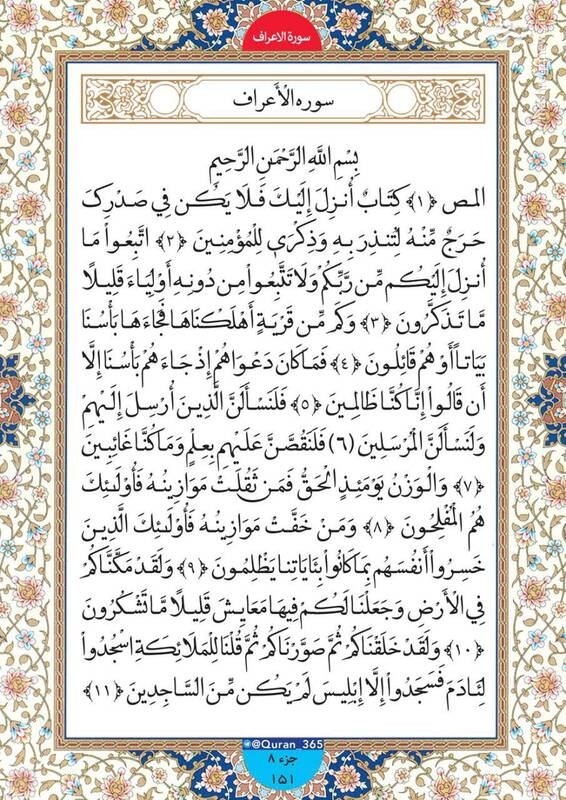 سورة الاعراف
سوره الأعراف
بِسْمِ اللَّهِ الرَّحْمَنِ الرَّحِيمِ
المص ﴿١﴾ كِتَابٌ أُنزِلَ إِلَيْكَ فَلَا يَكُن فِي صَدْرِكَ
حَرَجٌ مِّنْهُ لِتُنذِرَ بِهِ وَذِكْرَى لِلْمُؤْمِنِينَ ﴿٢﴾ اتَّبِعُوا مَا
أُنزِلَ إِلَيْكُم مِّن رَّبِّكُمْ وَلَا تَتَّبِعُوا مِن دُونِهِ أَوْلِيَاءَ قَلِيلًا
مَّا تَذَكَّرُونَ ﴿٣﴾ وَكَم مِّن قَرْيَةٍ أَهْلَكْنَاهَا فَجَاءَهَا بَأْسُنَا
بَيَاتاً أَوْ هُمْ قَائِلُونَ ﴿٤﴾ فَمَا كَانَ دَعْوَاهُمْ إِذْ جَاءَهُمْ بَأْسُنَا إِلَّا
أَن قَالُوا إِنَّا كُنَّا ظَالِمِينَ ﴿٥﴾ فَلَنَسْأَلَنَّ الَّذِينَ أُرْسِلَ إِلَيْهِمْ
وَلَنَسْأَلَنَّ الْمُرْسَلِينَ ﴿٦﴾ فَلَنَقُصَّنَّ عَلَيْهِم بِعِلْمٍ وَمَا كُنَّا غَائِبِينَ
﴿٧﴾ وَالْوَزْنُ يَوْمَئِذٍ الْحَقُّ فَمَن ثَقُلَتْ مَوَازِينُهُ فَأُولَئِكَ
هُمُ الْمُفْلِحُونَ ﴿٨﴾ وَمَنْ خَفَّتْ مَوَازِينُهُ فَأُولَئِكَ الَّذِينَ
خَسِرُوا أَنفُسَهُم بِمَا كَانُوا بِئَايَاتِنَا يَظْلِمُونَ ﴿٩﴾ وَلَقَدْ مَكَّنَّاكُمْ
فِي الْأَرْضِ وَجَعَلْنَا لَكُمْ فِيهَا مَعَايِشَ قَلِيلًا مَّا تَشْكُرُونَ
﴿١٠﴾ وَلَقَدْ خَلَقْنَاكُمْ ثُمَّ صَوَّرْنَاكُمْ ثُمَّ قُلْنَا لِلْمَلَائِكَةِ اسْجُدُوا
لِئَادَمَ فَسَجَدُوا إِلَّا إِبْلِيسَ لَمْ يَكُن مِّنَ السَّاجِدِينَ ﴿١١﴾
@Quran_365
جزء ٨
١٥١